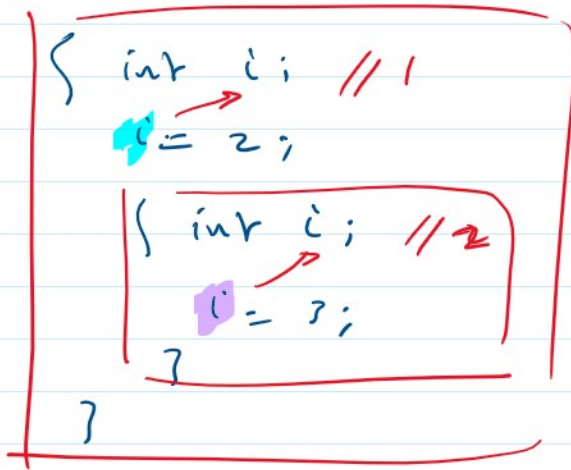 { int i; // 1
i = 2;
{ int i; // 2
i = 3;
}
}